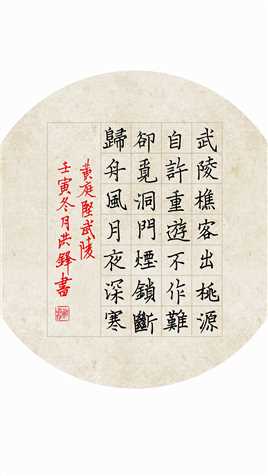 武陵樵客出桃源
自許重遊不作難
卻覓洞門煙鎖斷
歸舟風月夜深寒
黃庭堅武陵
壬寅冬月洪鐸書